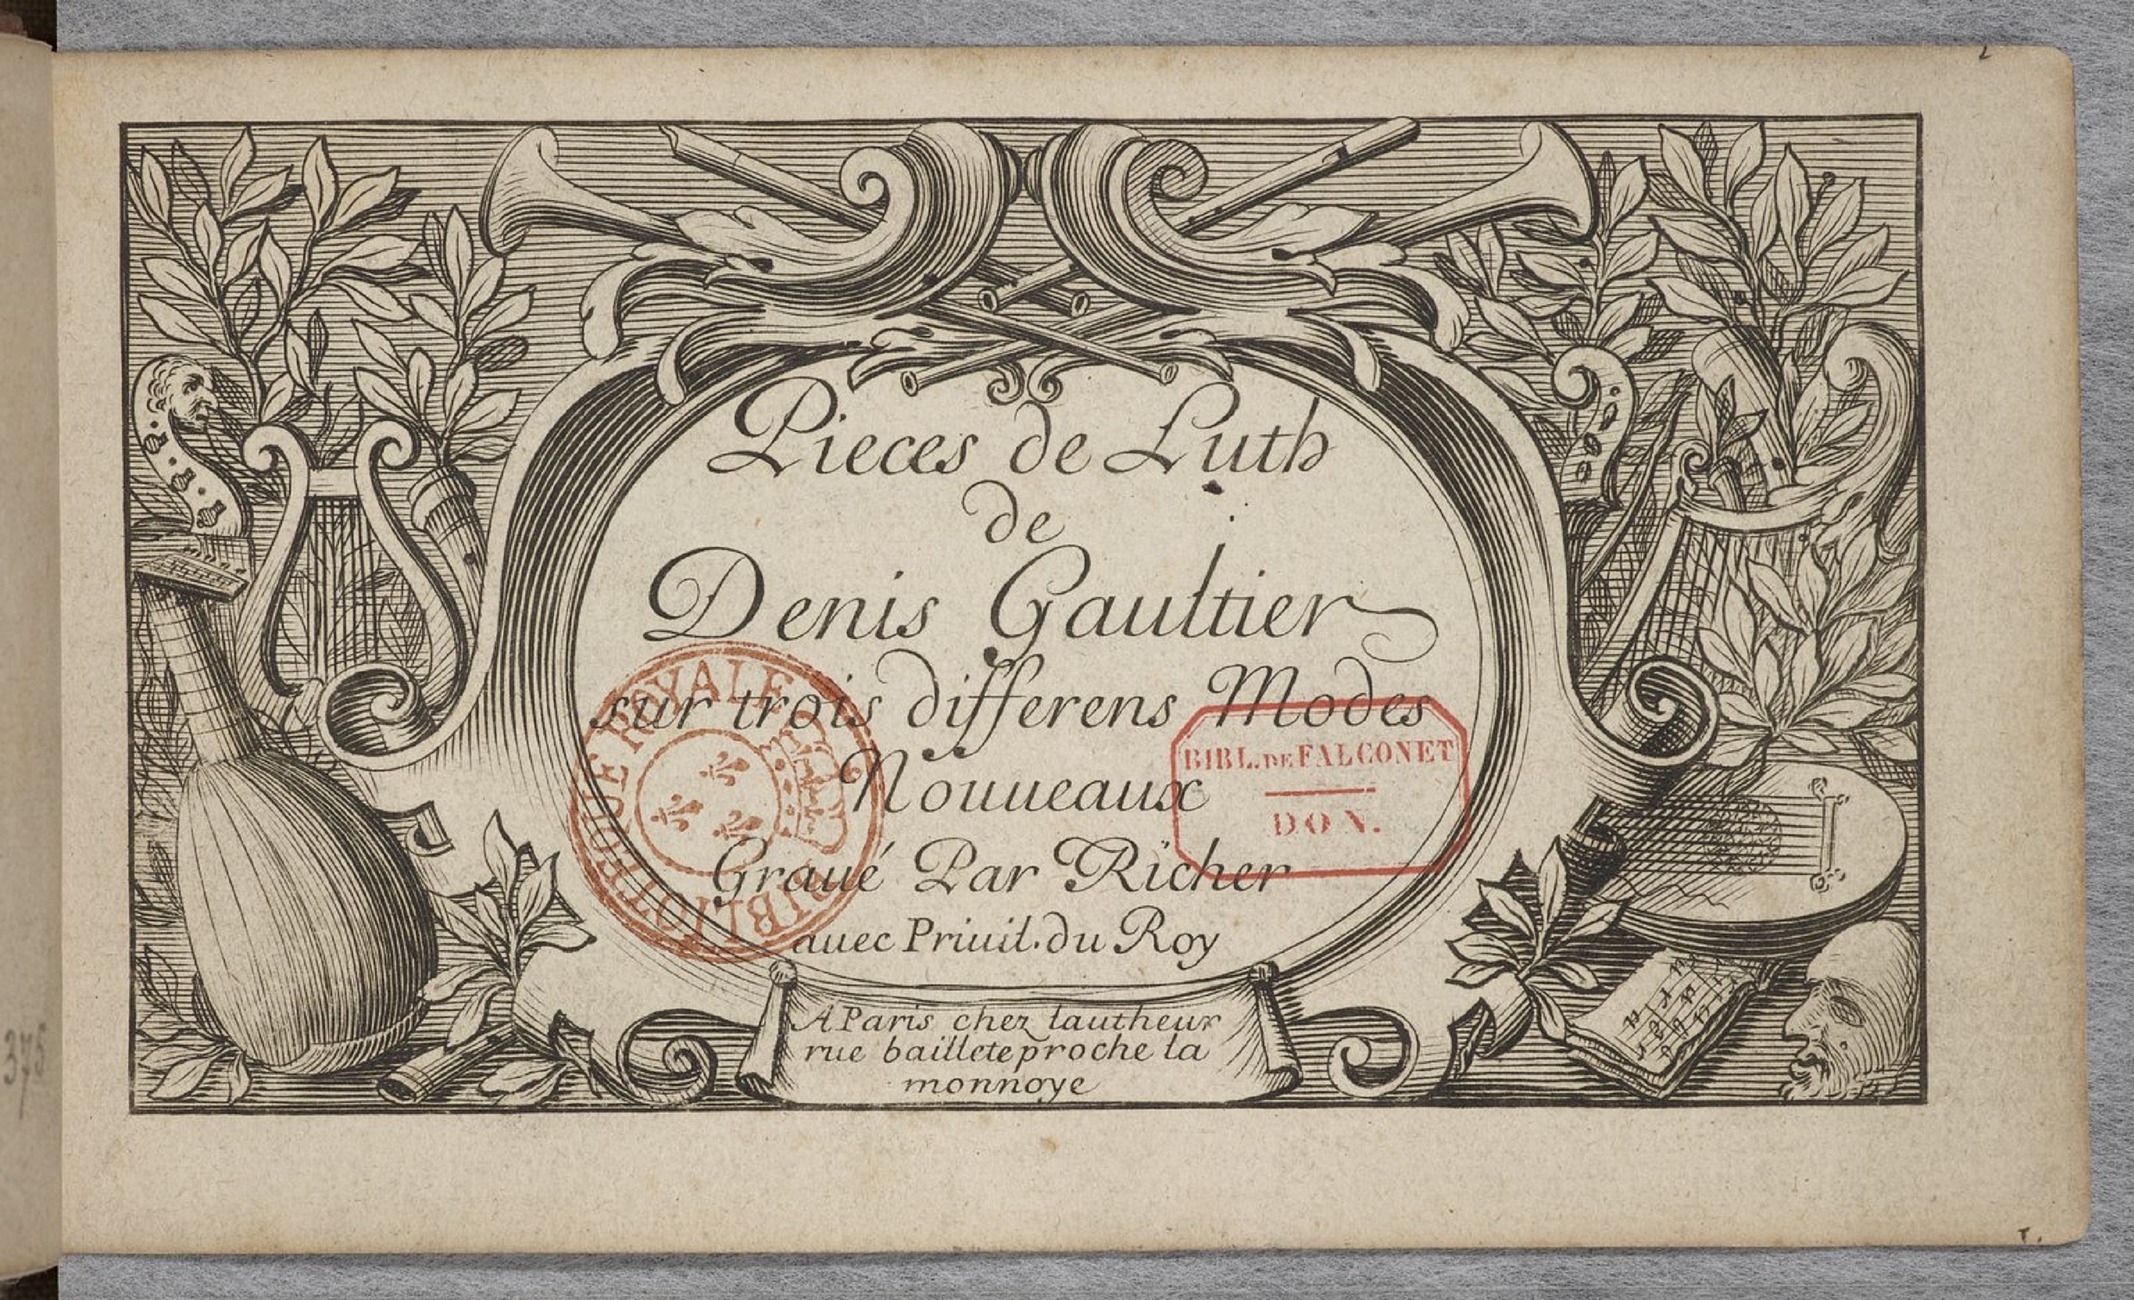 Pieces de Luth
de
Denis Gaultier
sur trois differens Modes
Nouueaux
Graué Par Richer
auec Priuil. du Roy
A Paris chez lautheur
rue baillete proche la
monnoye
BIBLIOTEQUE ROYALE
BIBL. DE FALCONET
DON.
375